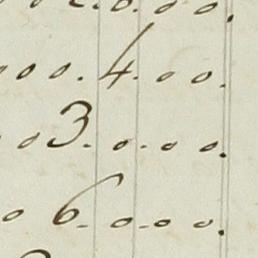 2. 0. 0 0.
0 0 0. 4. 0 0.
0 3. 0. 0 0.
0 6. 0. 0 0.